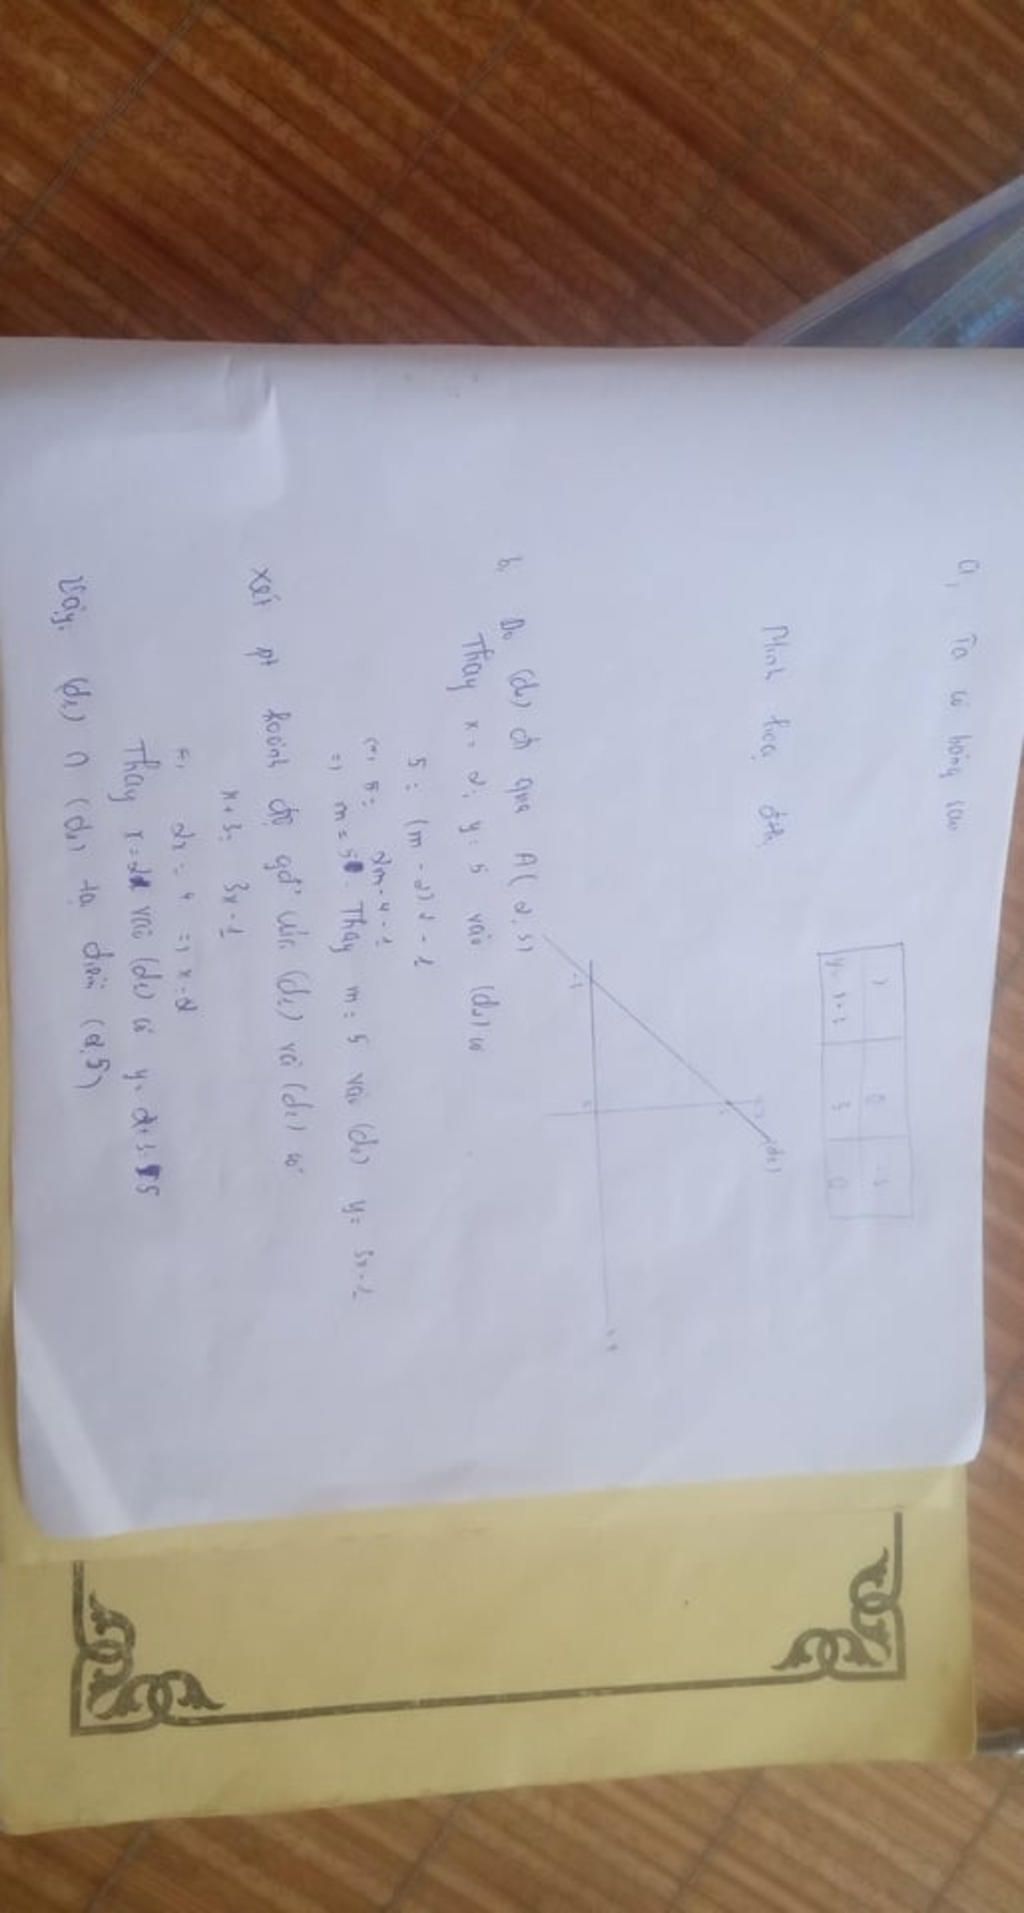 a, Ta có bảng sau
x 0 -3
y = x+3 3 0
Minh hoạ đths
(d1)
3
-3
b, Do (d2) đi qua A(2,5)
Thay x = 2; y = 5 vào (d2) có
5 = (m-2)2-1
<=> 5 = 2m-4-1
=> m = 5. Thay m = 5 vào (d2) y = 3x-1
Xét pt hoành độ gđ của (d1) và (d2) có
x+3 = 3x-1
<=> 2x = 4 => x=2
Thay x=2 vào (d1) có y = 2+3=5
Vậy (d1) ∩ (d2) tại điểm (2,5)